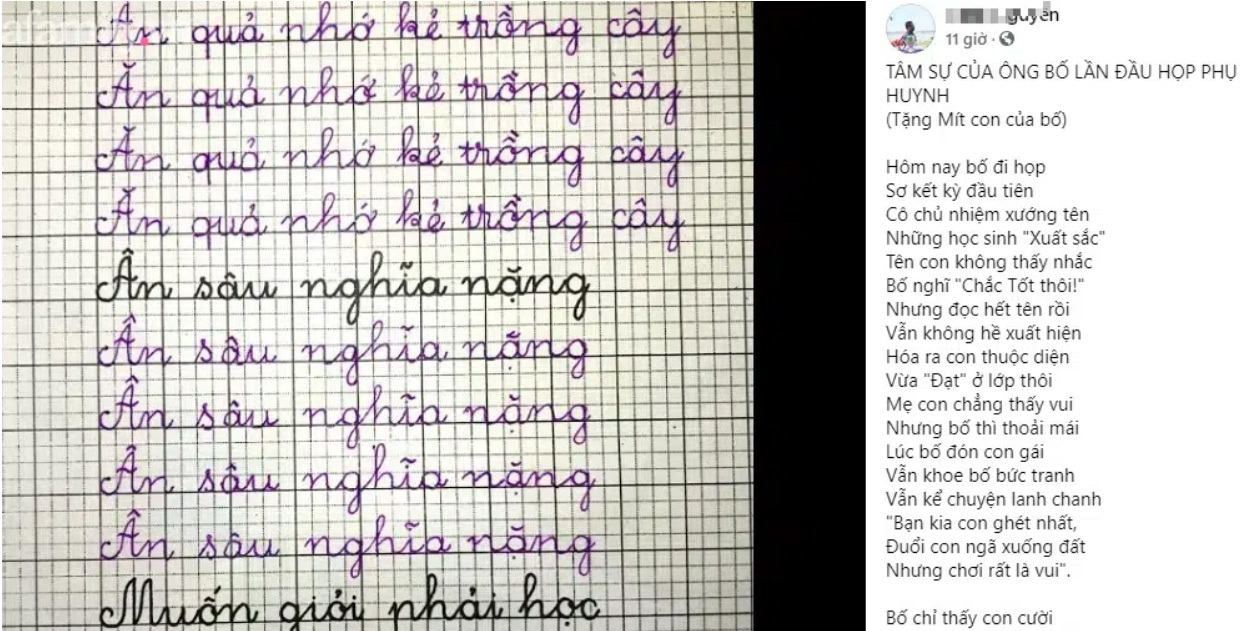 Ăn quả nhớ kẻ trồng cây
Ăn quả nhớ kẻ trồng cây
Ăn quả nhớ kẻ trồng cây
Ăn quả nhớ kẻ trồng cây
Ân sâu nghĩa nặng
Ân sâu nghĩa nặng
Ân sâu nghĩa nặng
Ân sâu nghĩa nặng
Ân sâu nghĩa nặng
Muốn giỏi phải học
guyễn
11 giờ ·
TÂM SỰ CỦA ÔNG BỐ LẦN ĐẦU HỌP PHỤ
HUYNH
(Tặng Mít con của bố)
Hôm nay bố đi họp
Sơ kết kỳ đầu tiên
Cô chủ nhiệm xướng tên
Những học sinh "Xuất sắc"
Tên con không thấy nhắc
Bố nghĩ "Chắc Tốt thôi!"
Nhưng đọc hết tên rồi
Vẫn không hề xuất hiện
Hóa ra con thuộc diện
Vừa "Đạt" ở lớp thôi
Mẹ con chẳng thấy vui
Nhưng bố thì thoải mái
Lúc bố đón con gái
Vẫn khoe bố bức tranh
Vẫn kể chuyện lanh chanh
"Bạn kia con ghét nhất,
Đuổi con ngã xuống đất
Nhưng chơi rất là vui".
Bố chỉ thấy con cười